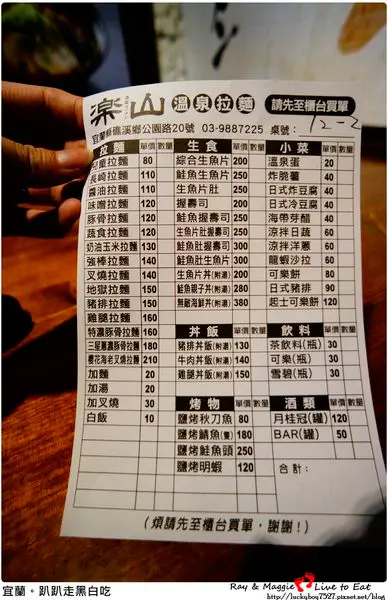 樂山 溫泉拉麵 請先至櫃台買單
宜蘭縣礁溪鄉公園路20號 03-9887225 桌號: 12-2
拉麵 單價 數量 生食 單價 數量 小菜 單價 數量
兒童拉麵 80 綜合生魚片 200 溫泉蛋 20
長崎拉麵 110 鮭魚生魚片 200 炸脆薯 40
醬油拉麵 110 生魚片肚 250 日式炸豆腐 40
味噌拉麵 120 握壽司 200 日式冷豆腐 40
豚骨拉麵 120 鮭魚握壽司 250 海帶芽醋 40
蔬食拉麵 120 生魚片肚握壽司 250 涼拌日蔬 60
奶油玉米拉麵 130 鮭魚肚握壽司 300 涼拌洋蔥 60
強棒拉麵 140 鮭魚肚生魚片 300 龍蝦沙拉 60
叉燒拉麵 140 生魚片丼(附湯) 200 可樂餅 80
地獄拉麵 150 鮭魚親子丼(附湯) 280 日式豬排 90
豬排拉麵 150 無敵海鮮丼(附湯) 380 起士可樂餅 120
雞腿拉麵 160
特濃豚骨拉麵 160 丼飯 單價 數量 飲料 單價 數量
三星蔥濃豚骨拉麵 180 豬排丼飯(附湯) 130 茶飲料(瓶) 30
櫻花海老叉燒拉麵 210 牛肉丼飯(附湯) 140 可樂(瓶) 30
加麵 20 雞腿丼飯(附湯) 150 雪碧(瓶) 30
加湯 20
加叉燒 30 烤物 單價 數量 酒類 單價 數量
白飯 10 鹽烤秋刀魚 80 月桂冠(罐) 120
鹽烤鯖魚(隻) 180 BAR(罐) 50
鹽烤鮭魚頭 250
鹽烤明蝦 120 合計:
(煩請先至櫃台買單,謝謝!)
宜蘭。趴趴走黑白吃
Ray & Maggie Live to Eat
http://luckyboy7527.pixnet.net/blog